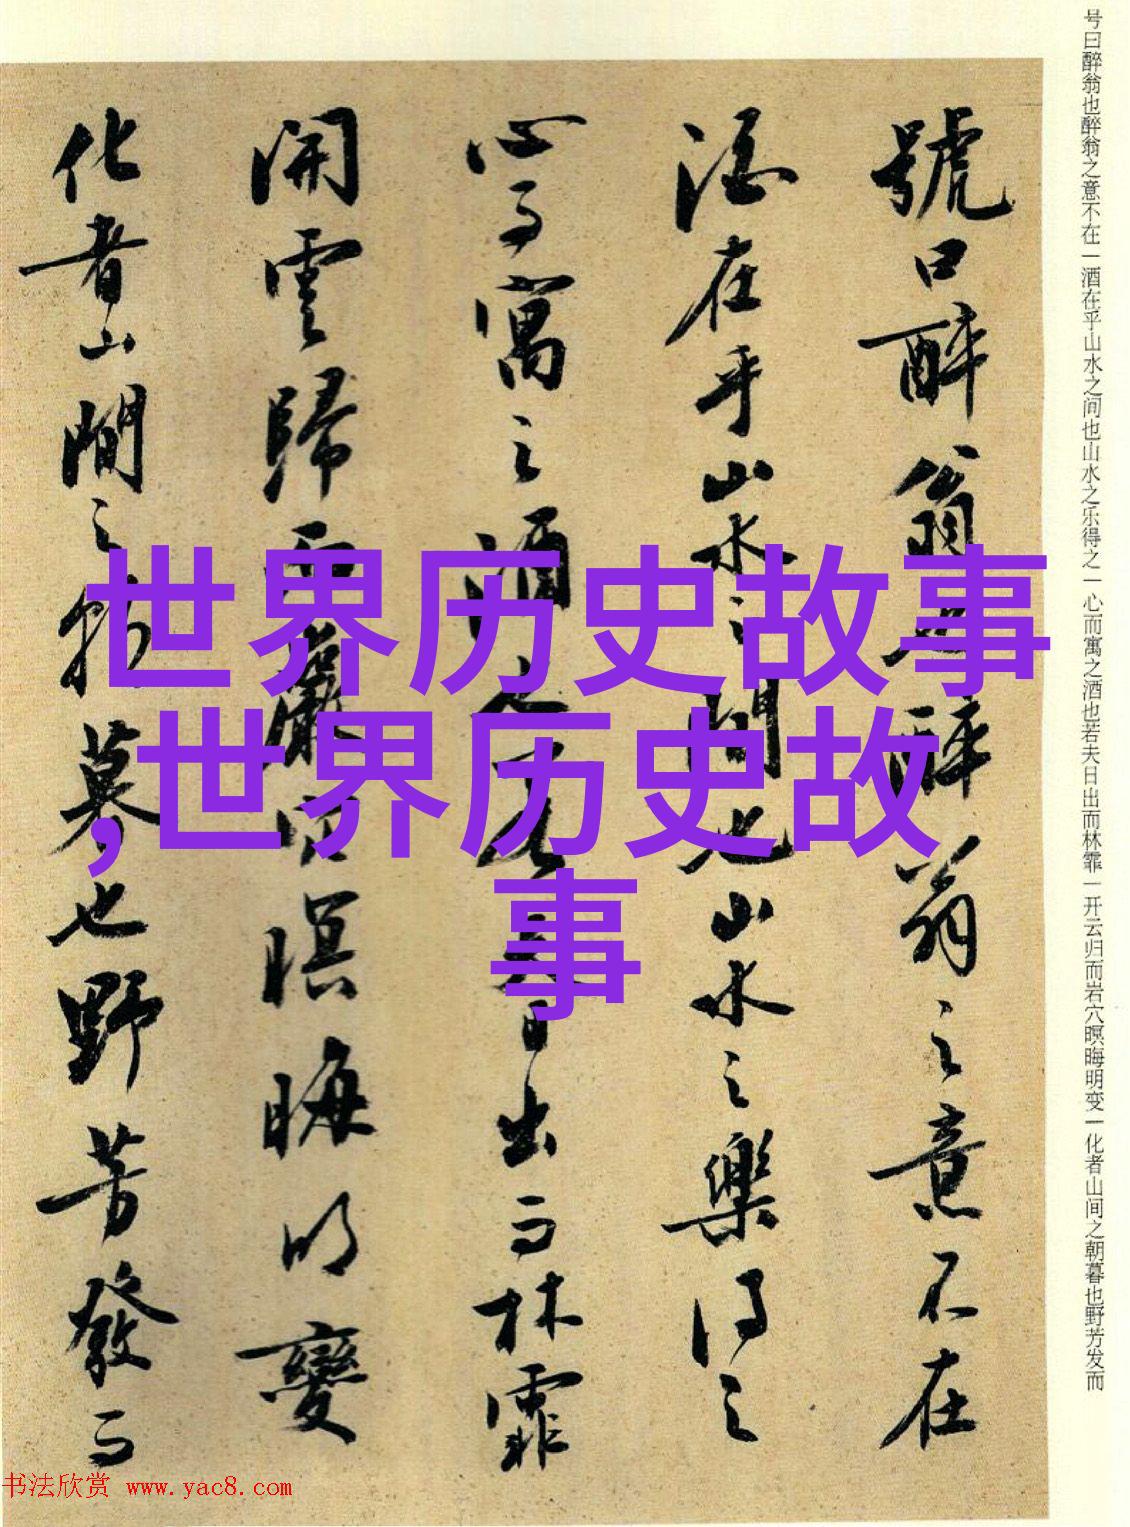 号曰醉翁也醉翁之意不在一酒在乎山水之间也山水之乐得之一心而寓之酒也若夫日出而林霏一开云归而岩穴暝晦明变一化者山间之朝暮也野芳发而
號曰醉翁也醉翁之意不在
酒在乎山水之間也山水之樂得之
心而寓之酒也若夫日出而林霏
開雲歸而巖穴暝晦明變
化者山間之朝暮也野芳發而
世界历史故事
,世界历史故
事
书法欣赏 www.yac8.com